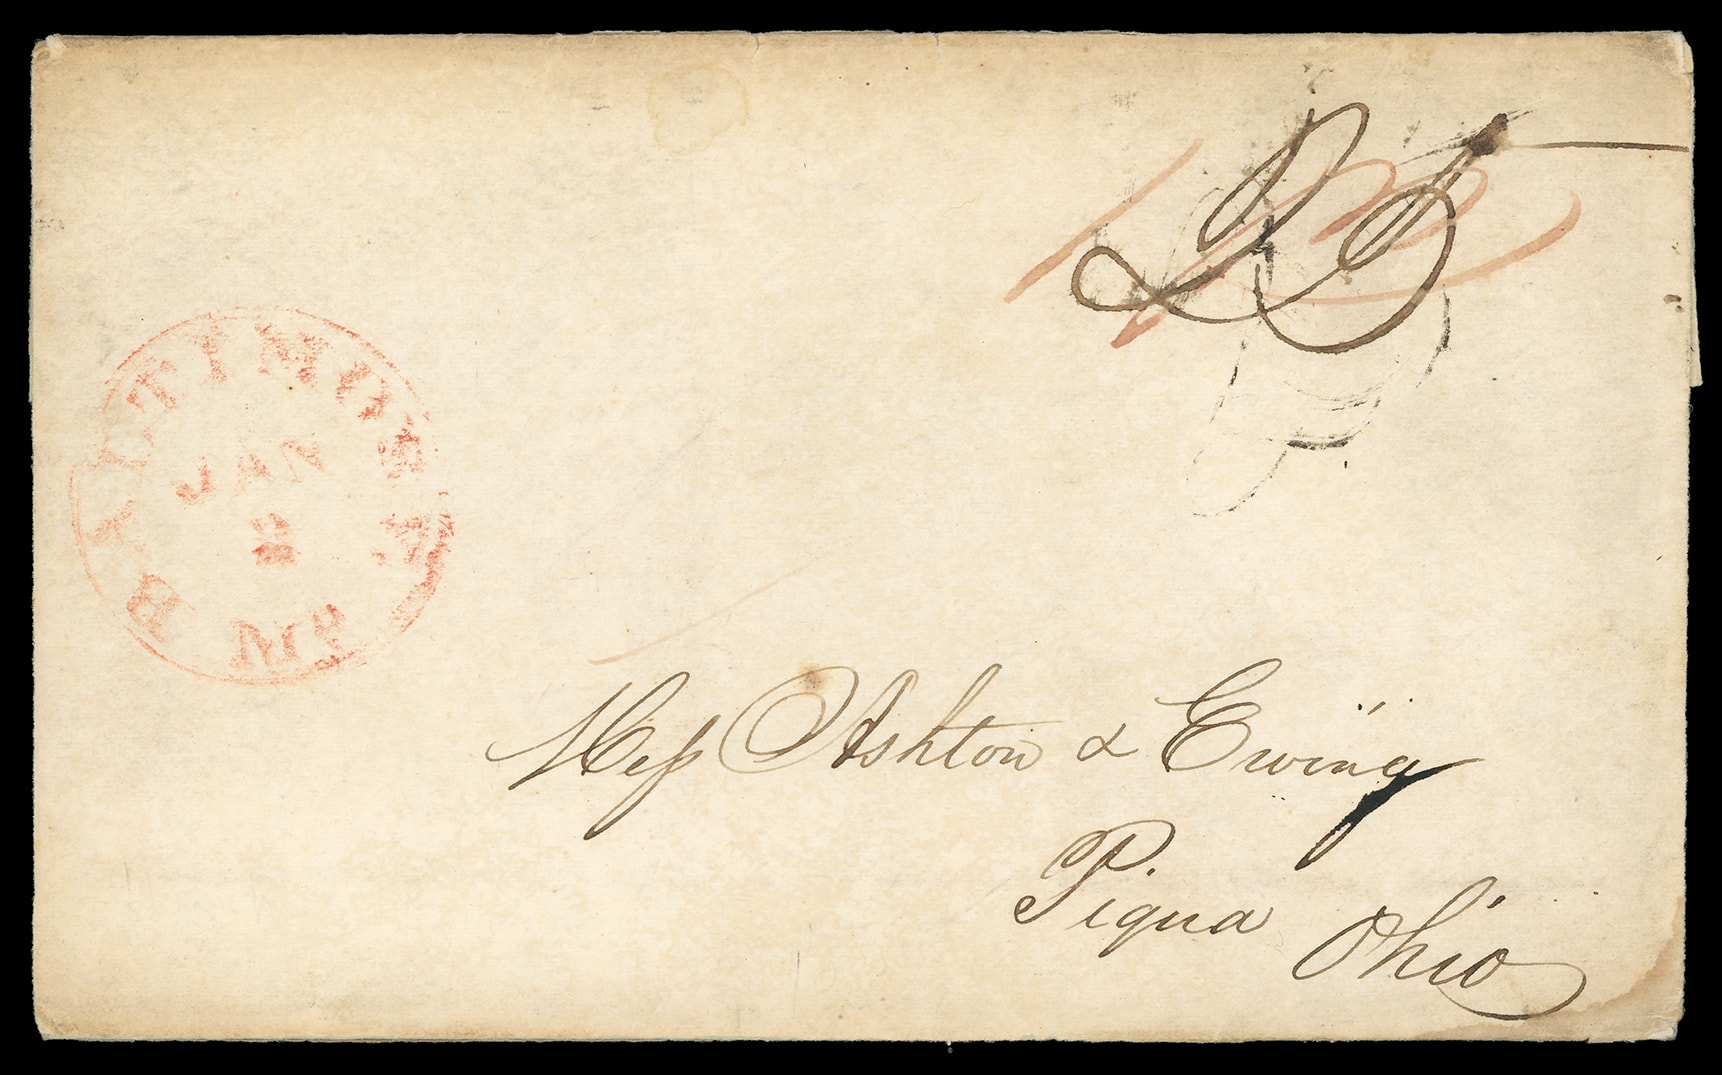 25
BALTIMORE Md.
JAN
2
Mess Ashton & Ewing
Piqua
Ohio